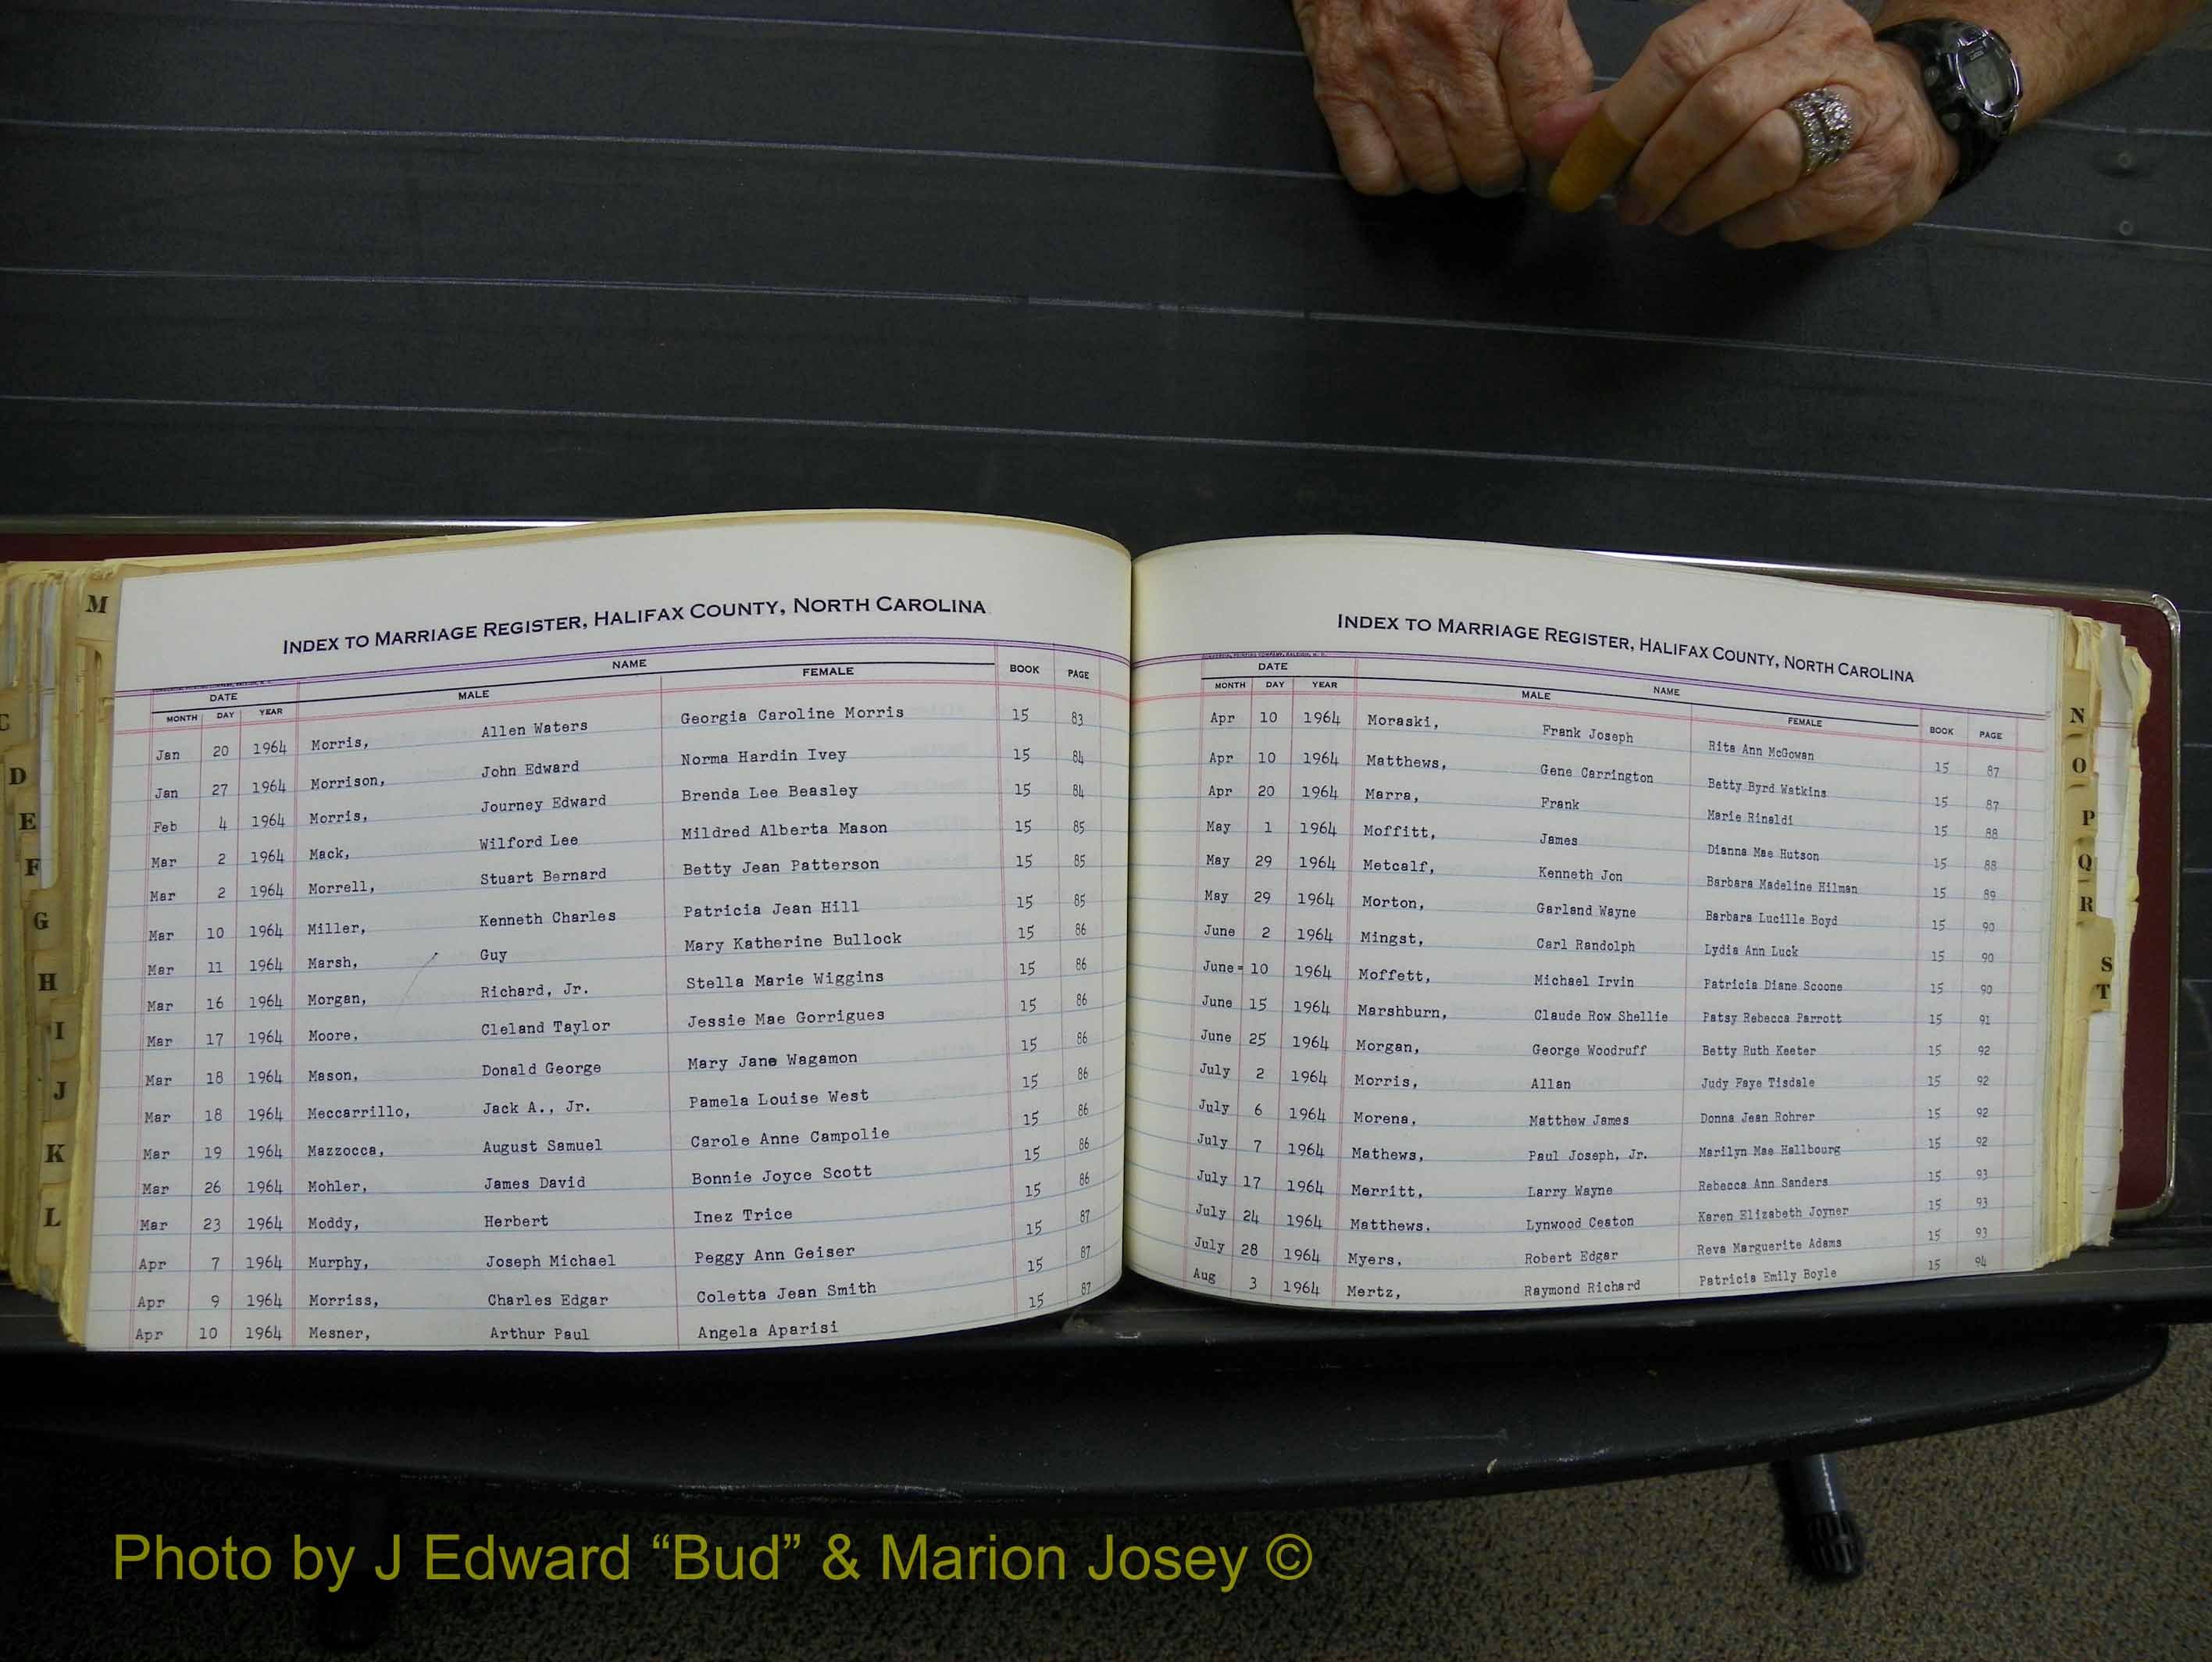 M
INDEX TO MARRIAGE REGISTER, HALIFAX COUNTY, NORTH CAROLINA
DATE NAME BOOK PAGE
MONTH DAY YEAR MALE FEMALE
Jan 20 1964 Morris, Allen Waters Georgia Caroline Morris 15 83
Jan 27 1964 Morrison, John Edward Norma Hardin Ivey 15 84
Feb 4 1964 Morris, Journey Edward Brenda Lee Beasley 15 84
Mar 2 1964 Mack, Wilford Lee Mildred Alberta Mason 15 85
Mar 2 1964 Morrell, Stuart Bernard Betty Jean Patterson 15 85
Mar 10 1964 Miller, Kenneth Charles Patricia Jean Hill 15 85
Mar 11 1964 Marsh, Guy Mary Katherine Bullock 15 86
Mar 16 1964 Morgan, Richard, Jr. Stella Marie Wiggins 15 86
Mar 17 1964 Moore, Cleland Taylor Jessie Mae Gorrigues 15 86
Mar 18 1964 Mason, Donald George Mary Jane Wagamon 15 86
Mar 18 1964 Meccarrillo, Jack A., Jr. Pamela Louise West 15 86
Mar 19 1964 Mazzocca, August Samuel Carole Anne Campolie 15 86
Mar 26 1964 Mohler, James David Bonnie Joyce Scott 15 86
Mar 23 1964 Moddy, Herbert Inez Trice 15 86
Apr 7 1964 Murphy, Joseph Michael Peggy Ann Geiser 15 87
Apr 9 1964 Morriss, Charles Edgar Coletta Jean Smith 15 87
Apr 10 1964 Mesner, Arthur Paul Angela Aparisi 15 87
C
D
E
F
G
H
I
J
K
L
INDEX TO MARRIAGE REGISTER, HALIFAX COUNTY, NORTH CAROLINA
DATE NAME
MONTH DAY YEAR MALE FEMALE BOOK PAGE
Apr 10 1964 Moraski, Frank Joseph Rita Ann McGowan 15 87
Apr 10 1964 Matthews, Gene Carrington Betty Byrd Watkins 15 87
Apr 20 1964 Marra, Frank Marie Rinaldi 15 88
May 1 1964 Moffitt, James Dianna Mae Hutson 15 88
May 29 1964 Metcalf, Kenneth Jon Barbara Madeline Hilman 15 89
May 29 1964 Morton, Garland Wayne Barbara Lucille Boyd 15 90
June 2 1964 Mingst, Carl Randolph Lydia Ann Luck 15 90
June= 10 1964 Moffett, Michael Irvin Patricia Diane Scoone 15 90
June 15 1964 Marshburn, Claude Row Shellie Patsy Rebecca Parrott 15 91
June 25 1964 Morgan, George Woodruff Betty Ruth Keeter 15 92
July 2 1964 Morris, Allan Judy Faye Tisdale 15 92
July 6 1964 Morena, Matthew James Donna Jean Rohrer 15 92
July 7 1964 Mathews, Paul Joseph, Jr. Marilyn Mae Hallbourg 15 92
July 17 1964 Merritt, Larry Wayne Rebecca Ann Sanders 15 93
July 24 1964 Matthews. Lynwood Ceaton Karen Elizabeth Joyner 15 93
July 28 1964 Myers, Robert Edgar Reva Marguerite Adams 15 93
Aug 3 1964 Mertz, Raymond Richard Patricia Emily Boyle 15 94
N
O
P
Q
R
S
T
Photo by J Edward “Bud” & Marion Josey ©